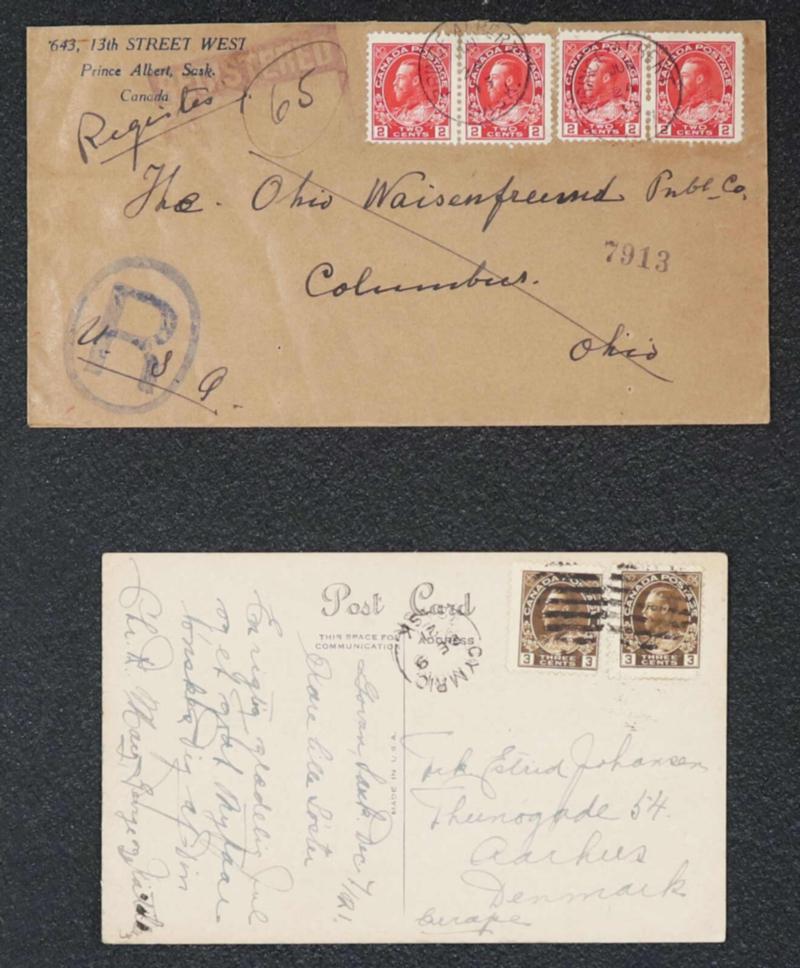 643, 13th STREET WEST
Prince Albert, Sask.
Canada
REGISTERED
Register
65
CANADA POSTAGE
2 TWO CENTS 2
CANADA POSTAGE
2 TWO CENTS 2
CANADA POSTAGE
2 TWO CENTS 2
CANADA POSTAGE
2 TWO CENTS 2
The. Ohio Waisenfreund Publ. Co,
7913
Columbus.
Ohio
R
U S A.
Post Card
THIS SPACE FOR
COMMUNICATION
ADDRESS
CYMRIC
SASK
CANADA POSTAGE
3 THREE CENTS 3
CANADA POSTAGE
3 THREE CENTS 3
MADE IN U.S.A.
Govan, Sask Dec 7/21.
Kære lille Søster
En rigtig glædelig Jul
og et godt Nytaar
ønskes dig af din
Chr. R. Mary, George og
Estrid Johansen
Thunøgade 54.
Aarhus
Denmark
Europe